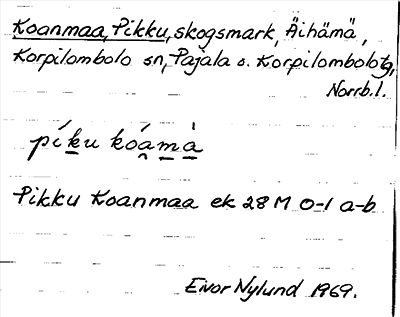 Koanmaa, Pikku, skogsmark, Äihämä,
Korpilombolo sn, Pajala o. Korpilombolo tg,
Norrb. l.
píku kóamà
Pikku Koanmaa ek 28 M 0-1 a-b
Eivor Nylund 1969.